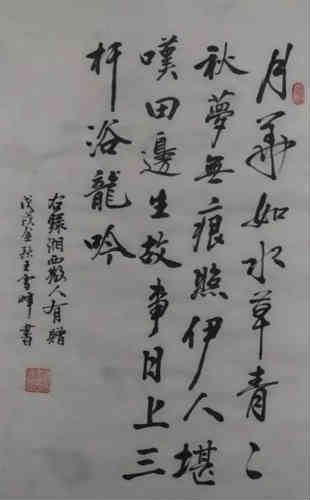 月華如水草青々
秋夢無痕照伊人堪
嘆田邊生故事日上三
杆浴龍吟
右錄湘西散人有贈
戊戌金秋王雪峰書